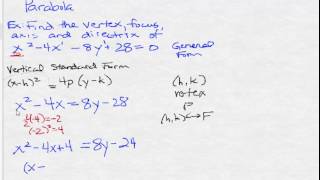 Parabola
Ex: Find the vertex, focus,
axis and directrix of
x² - 4x - 8y + 28 = 0 General Form
Vertical Standard Form
(x-h)² = 4p(y-k) (h,k) vertex
x² - 4x = 8y - 28 P
½(-4) = -2 (h,k) ↔ F
(-2)² = 4
x² - 4x + 4 = 8y - 24
(x -